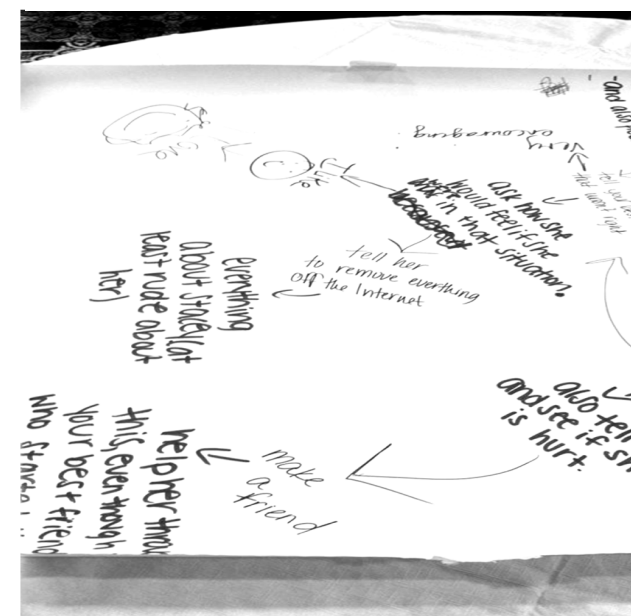 -and also
very
encouraging
that wasn't right
ask how she
would feel if she
were in that situation.
tell her
to remove everthing
off the Internet
everything
about Stacey(at
least rude about
her)
also tell
and see if
is hurt.
make
a
friend
help her
this, even though
your best friend
who